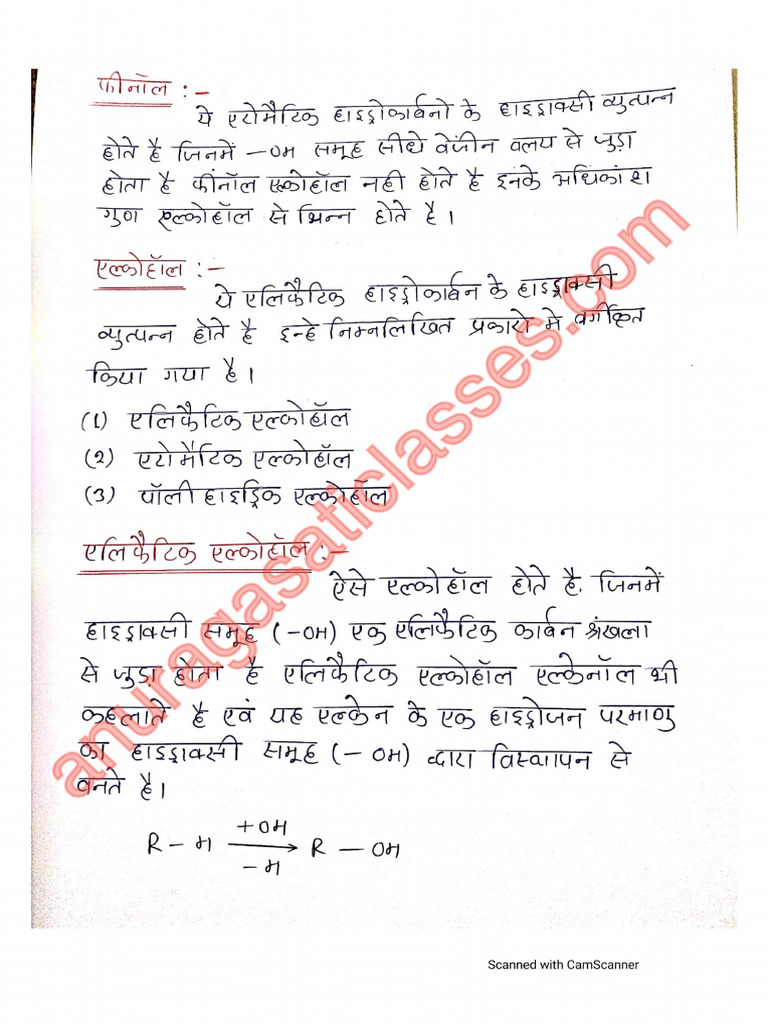 फीनॉल :-
ये एरोमैटिक हाइड्रोकार्बनो के हाइड्राक्सी व्युत्पन्न
होते है जिनमें -OH समूह सीधे बेंजीन वलय से जुड़ा
होता है फीनॉल एल्कोहॉल नही होते है इनके अधिकांश
गुण एल्कोहॉल से भिन्न होते है।
एल्कोहॉल :-
ये एलिफैटिक हाइड्रोकार्बन के हाइड्राक्सी
व्युत्पन्न होते है इन्हे निम्नलिखित प्रकारो मे वर्गीकृत
किया गया है।
(1) एलिफैटिक एल्कोहॉल
(2) एरोमैटिक एल्कोहॉल
(3) पॉली हाइड्रिक एल्कोहॉल
एलिफैटिक एल्कोहॉल :-
ऐसे एल्कोहॉल होते है, जिनमें
हाइड्राक्सी समूह (-OH) एक एलिफैटिक कार्बन श्रंखला
से जुड़ा होता है एलिफैटिक एल्कोहॉल एल्केनॉल भी
कहलाते है एवं यह एल्केन के एक हाइड्रोजन परमाणु
का हाइड्राक्सी समूह (-OH) द्वारा विस्थापन से
बनते है।
+OH
R-H → R-OH
-H
anuragasaticlasses.com
Scanned with CamScanner